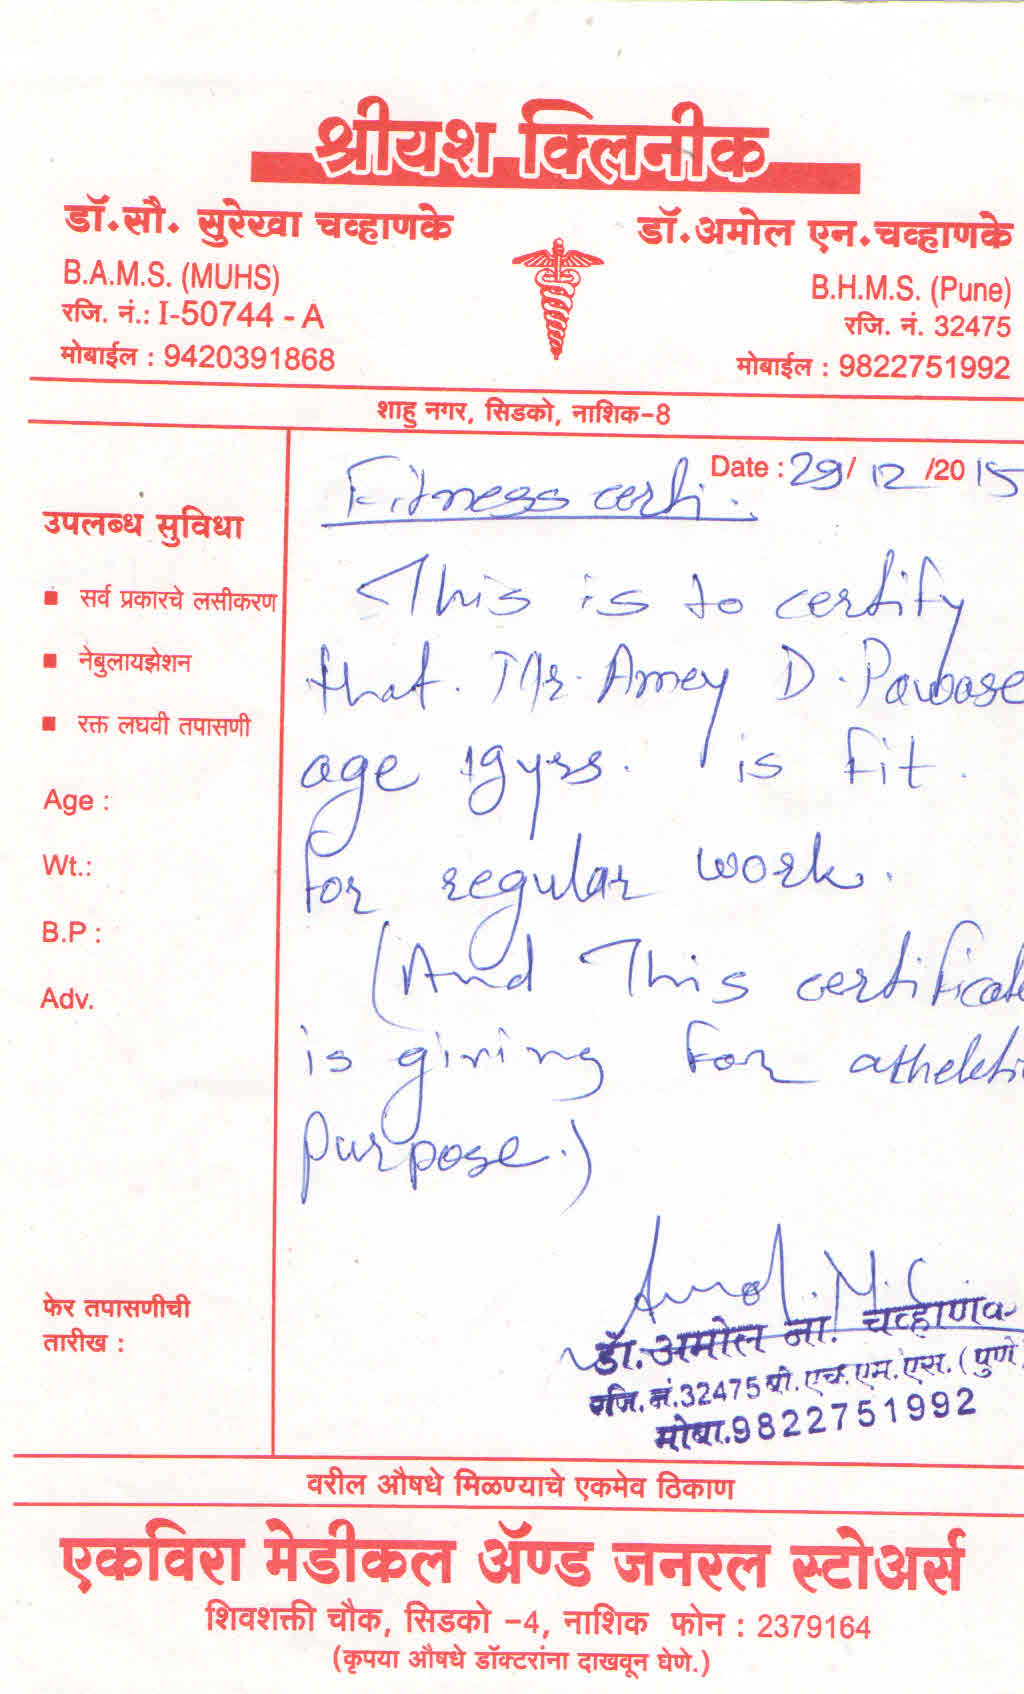 श्रीयश क्लिनीक
डॉ.सौ. सुरेखा चव्हाणके
B.A.M.S. (MUHS)
रजि. नं.: I-50744 - A
मोबाईल : 9420391868
डॉ.अमोल एन.चव्हाणके
B.H.M.S. (Pune)
रजि. नं. 32475
मोबाईल : 9822751992
शाहु नगर, सिडको, नाशिक-8
Date : 29/ 12 /2015
उपलब्ध सुविधा
▪ सर्व प्रकारचे लसीकरण
▪ नेबुलायझेशन
▪ रक्त लघवी तपासणी
Age :
Wt.:
B.P :
Adv.
फेर तपासणीची
तारीख :
Fitness certi.
This is to certify
that. Mr. Amey D. Pawase
age 19yrs. is fit.
for regular work.
(And This certificate
is giving for atheletic
purpose.)
Amol. N. C.
डॉ.अमोल ना. चव्हाणके
रजि.नं.32475 बी.एच.एम.एस.(पुणे)
मोबा.9822751992
वरील औषधे मिळण्याचे एकमेव ठिकाण
एकविरा मेडीकल ॲण्ड जनरल स्टोअर्स
शिवशक्ती चौक, सिडको -4, नाशिक फोन : 2379164
(कृपया औषधे डॉक्टरांना दाखवून घेणे.)